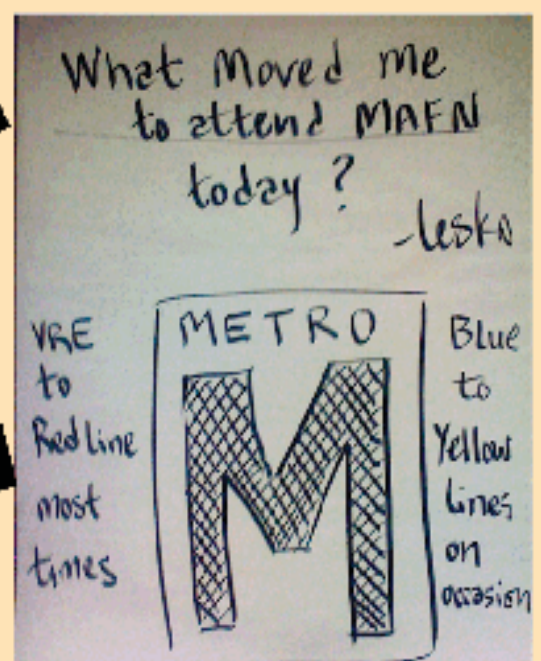 What Moved me
to attend MAFN
today?
-Lesko
METRO
M
VRE
to
Red line
most
times
Blue
to
Yellow
Lines
on
occasion